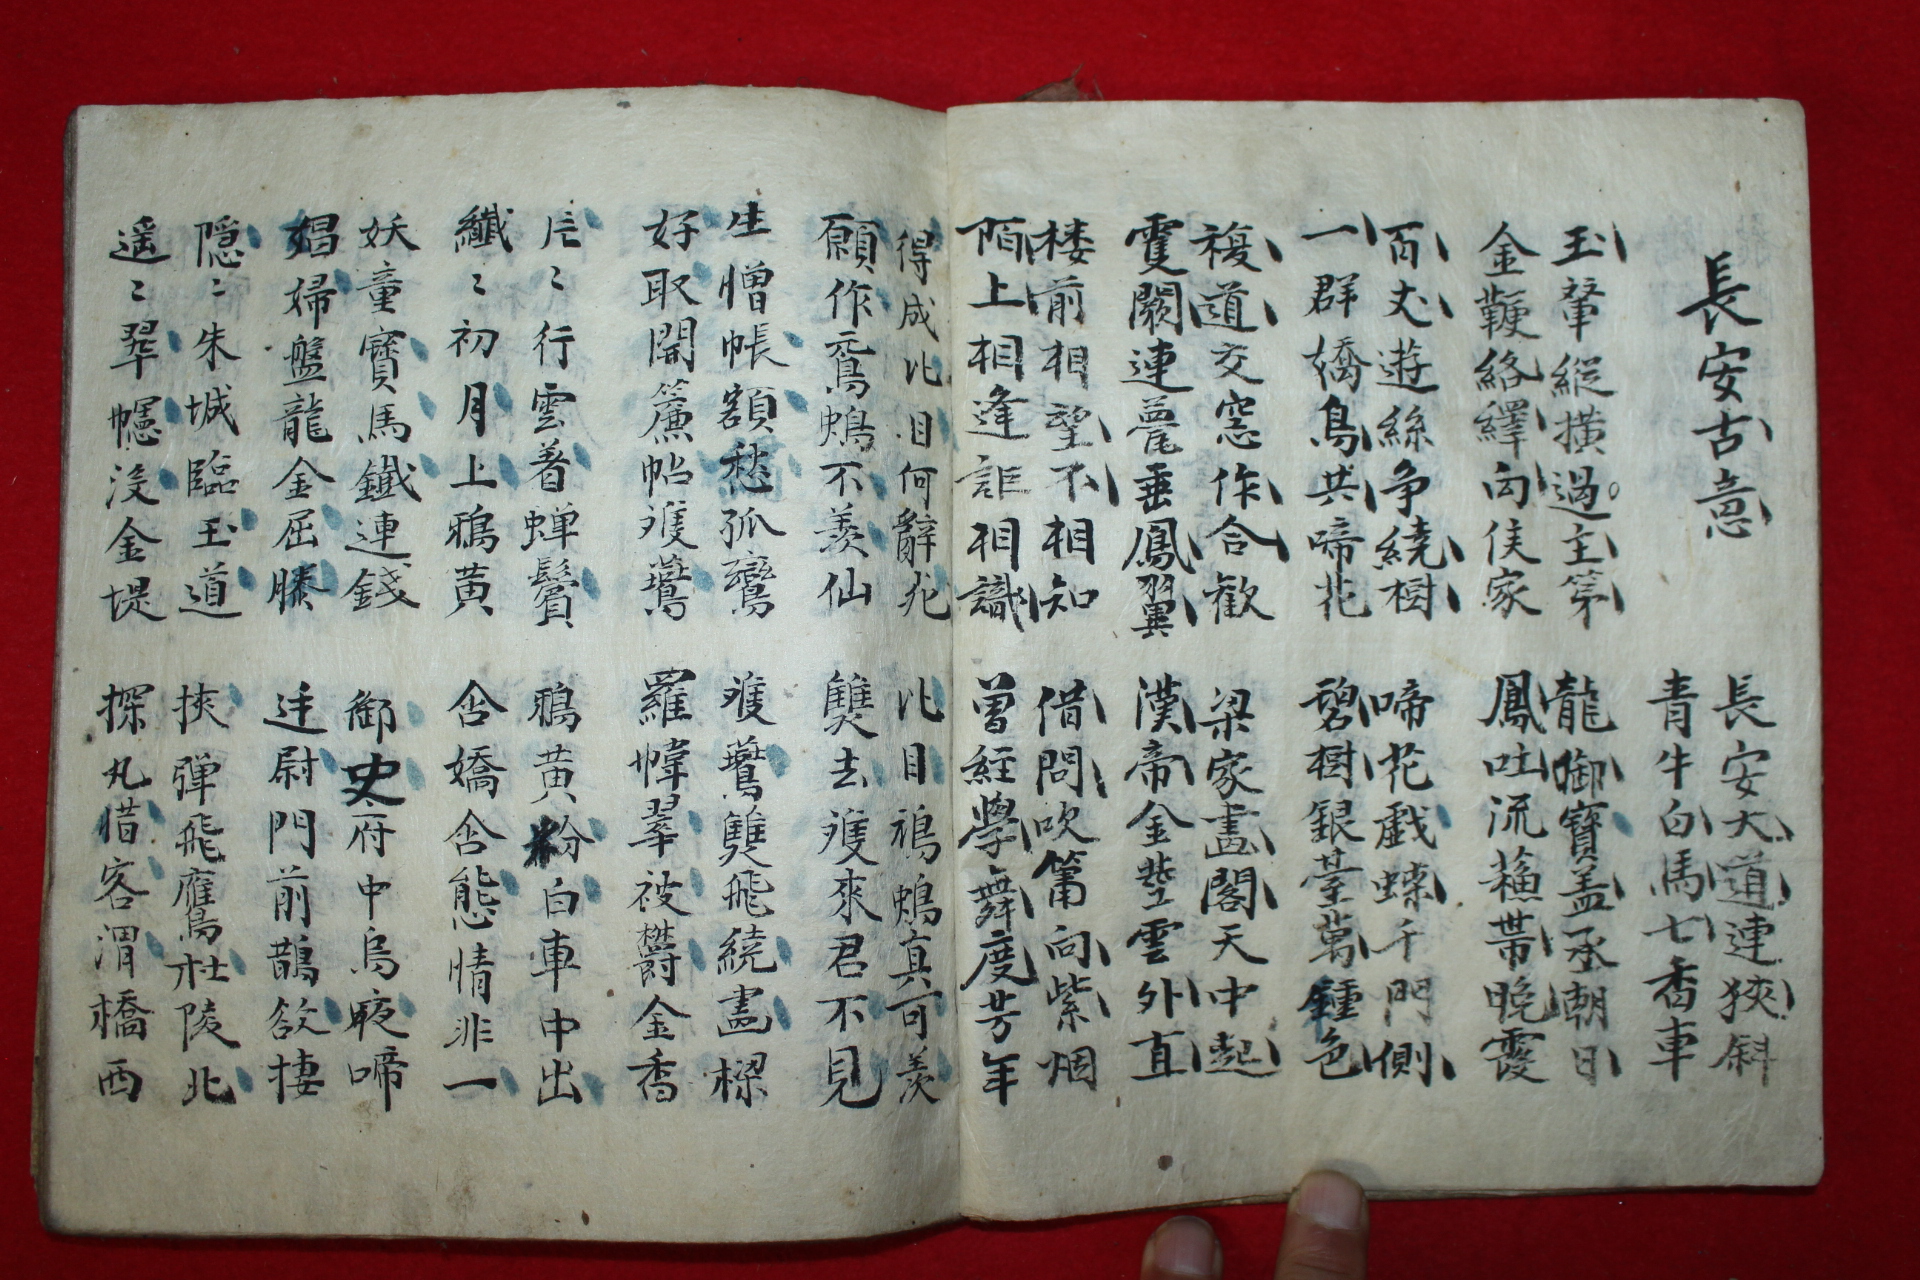 長安古意
長安大道連狹斜
青牛白馬七香車
玉輦縱橫過主第
金鞭絡繹向侯家
龍御寶盖丞朝日
鳳吐流蘓帶晩霞
百丈遊絲争繞樹
一群嬌鳥共啼花
啼花戱蝶千門側
碧樹銀臺萬鍾色
複道交窓作合歡
雙闕連甍垂鳳翼
梁家畫閣天中起
漢帝金莖雲外直
楼前相望不相知
陌上相逢詎相識
借問吹簫向紫烟
曽經學舞度芳年
得成比目何辭死
願作鴛鴦不羨仙
比目鴛鴦真可羨
雙去雙來君不見
生憎帳額愁孤鸞
好取開簾帖雙鷰
雙鷰雙飛繞畫樑
羅幃翠被欝金香
片〻行雲着蟬鬢
纖〻初月上鴉黄
鴉黄粉白車中出
含嬌含態情非一
妖童寳馬鐵連錢
娼婦盤龍金屈膝
御史府中烏夜啼
廷尉門前鵲欲捿
隠〻朱城臨玉道
遥〻翠幰没金堤
挾彈飛鷹杜陵北
探丸借客渭橋西